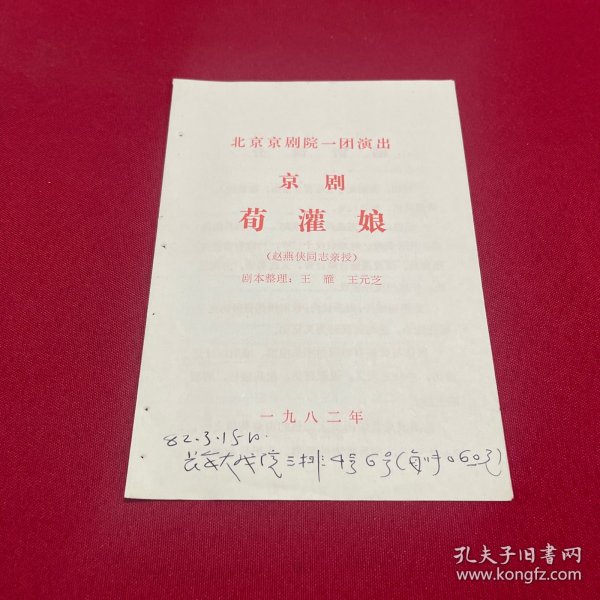 北京京剧院一团演出
京剧
荀灌娘
(赵燕侠同志亲授)
剧本整理：王雁 王元芝
一九八二年
82.3.15日.
长安大戏院 三排 4号 6号(每时0.60元)
孔夫子旧书网
www.kongfz.com